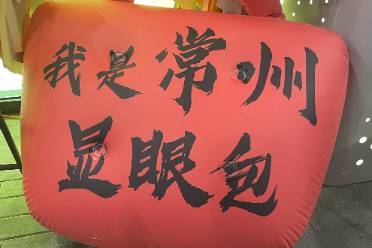 我是常州
显眼包